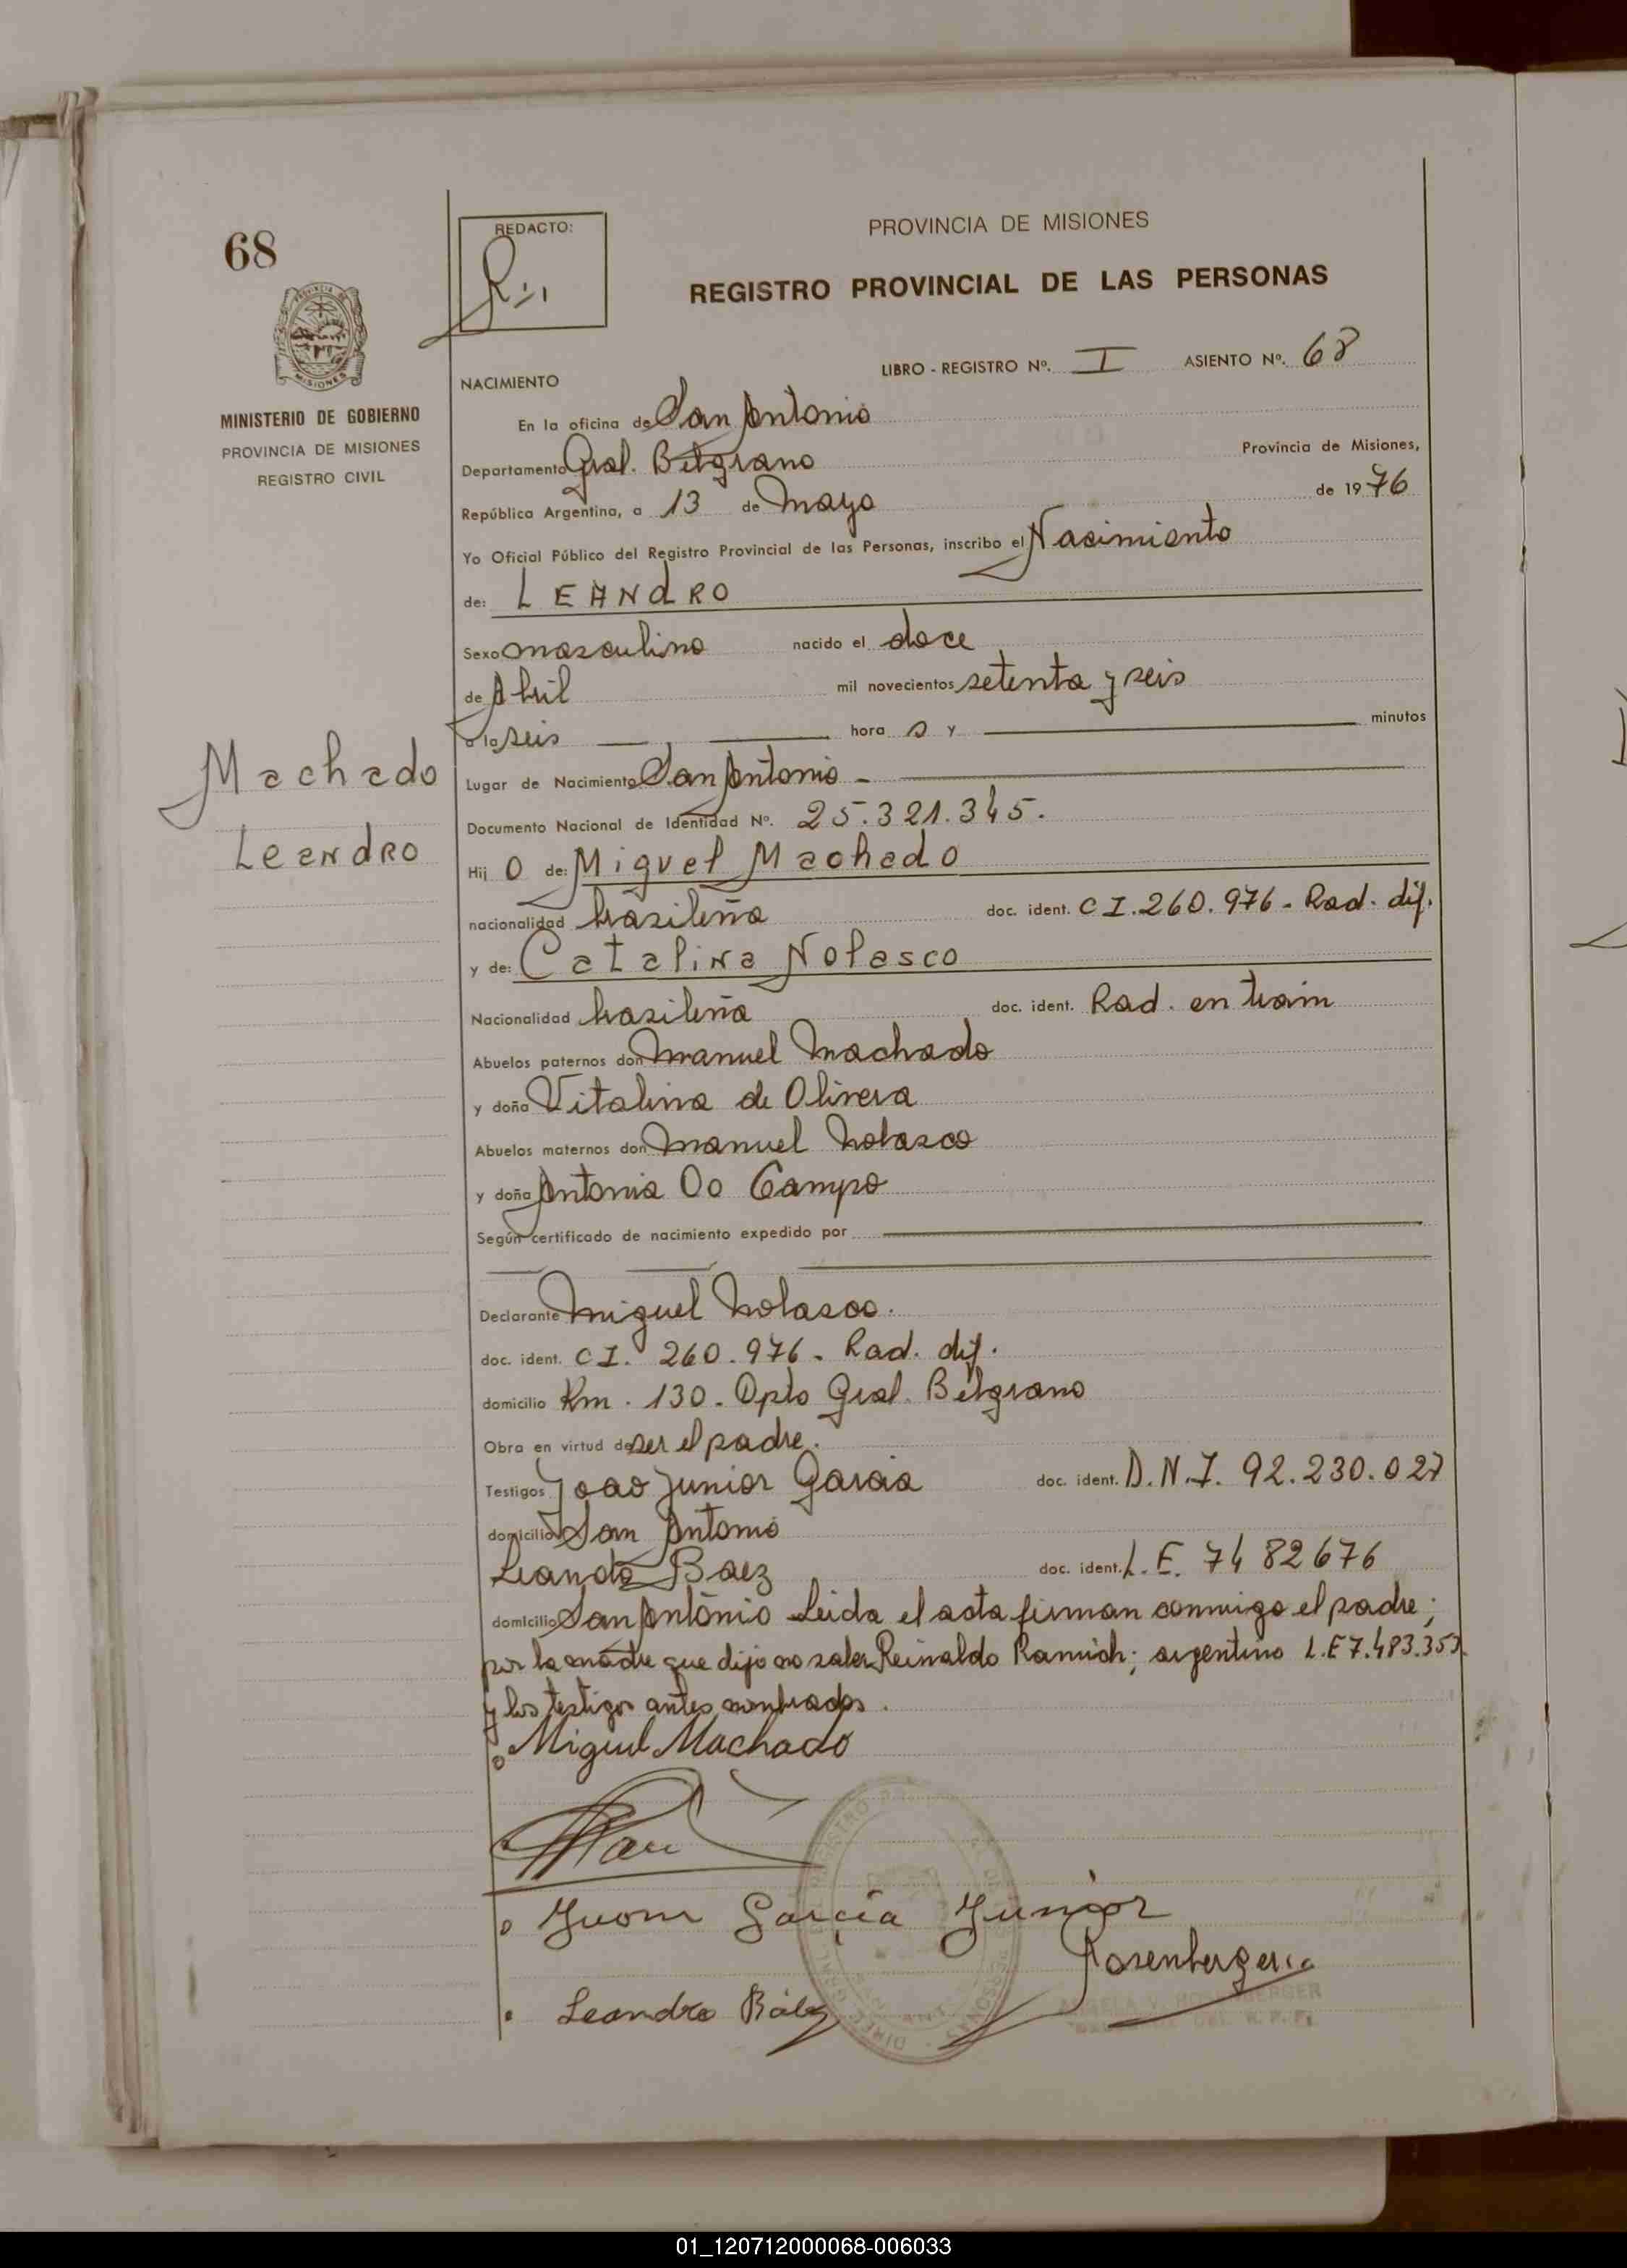 68
REDACTO:
PROVINCIA DE MISIONES
REGISTRO PROVINCIAL DE LAS PERSONAS
MINISTERIO DE GOBIERNO
PROVINCIA DE MISIONES
REGISTRO CIVIL
LIBRO - REGISTRO Nº. I ASIENTO Nº. 68
NACIMIENTO
En la oficina de San Antonio
Departamento Gral. Belgrano Provincia de Misiones,
República Argentina, a 13 de Mayo de 1976
Yo Oficial Público del Registro Provincial de las Personas, inscribo el Nacimiento
de: LEANdRO
Sexo masculino nacido el doce
de Abril mil novecientos setenta y seis
a la seis hora s y minutos
Machado
Leandro
Lugar de Nacimiento San Antonio -
Documento Nacional de Identidad Nº. 25.321.345.
Hij o de: Miguel Machado
nacionalidad brasileña doc. ident. CI. 260.976 - Rad. dif.
y de: Catalina Nolasco
Nacionalidad brasileña doc. ident. Rad. en tram
Abuelos paternos don Manuel Machado
y doña Vitalina de Olivera
Abuelos maternos don Manuel Nolasco
y doña Antonia Do Campo
Según certificado de nacimiento expedido por
Declarante Miguel Nolasco.
doc. ident. CI. 260.976 - Rad. dif.
domicilio Km. 130 - Dpto Gral. Belgrano
Obra en virtud de ser el padre.
Testigos Joao Junior Garcia doc. ident. D.N.I. 92.230.027
domicilio San Antonio
Leandro Baez doc. ident. L.E. 7482676
domicilio San António Leida el acta firman conmigo el padre;
por la madre que dijo no saber Reinaldo Ramich; argentino L.E 7.483.353
y los testigos antes nombrados.
Miguel Machado
Juom Garcia Junior
Rosenberger
Leandro Báez
ANGELA V. ROSENBERGER
01_120712000068-006033